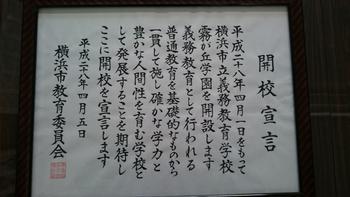 開校宣言
平成二十八年四月一日をもって
横浜市立義務教育学校
霧が丘学園を開設します
義務教育として行われる
普通教育を基礎的なものから
一貫して施し確かな学力と
豊かな人間性を育む学校と
して発展することを期待し
ここに開校を宣言します
平成二十八年四月五日
横浜市教育委員会